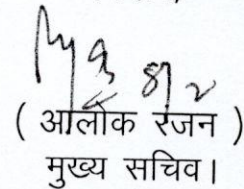 ( आलोक रंजन )
मुख्य सचिव।